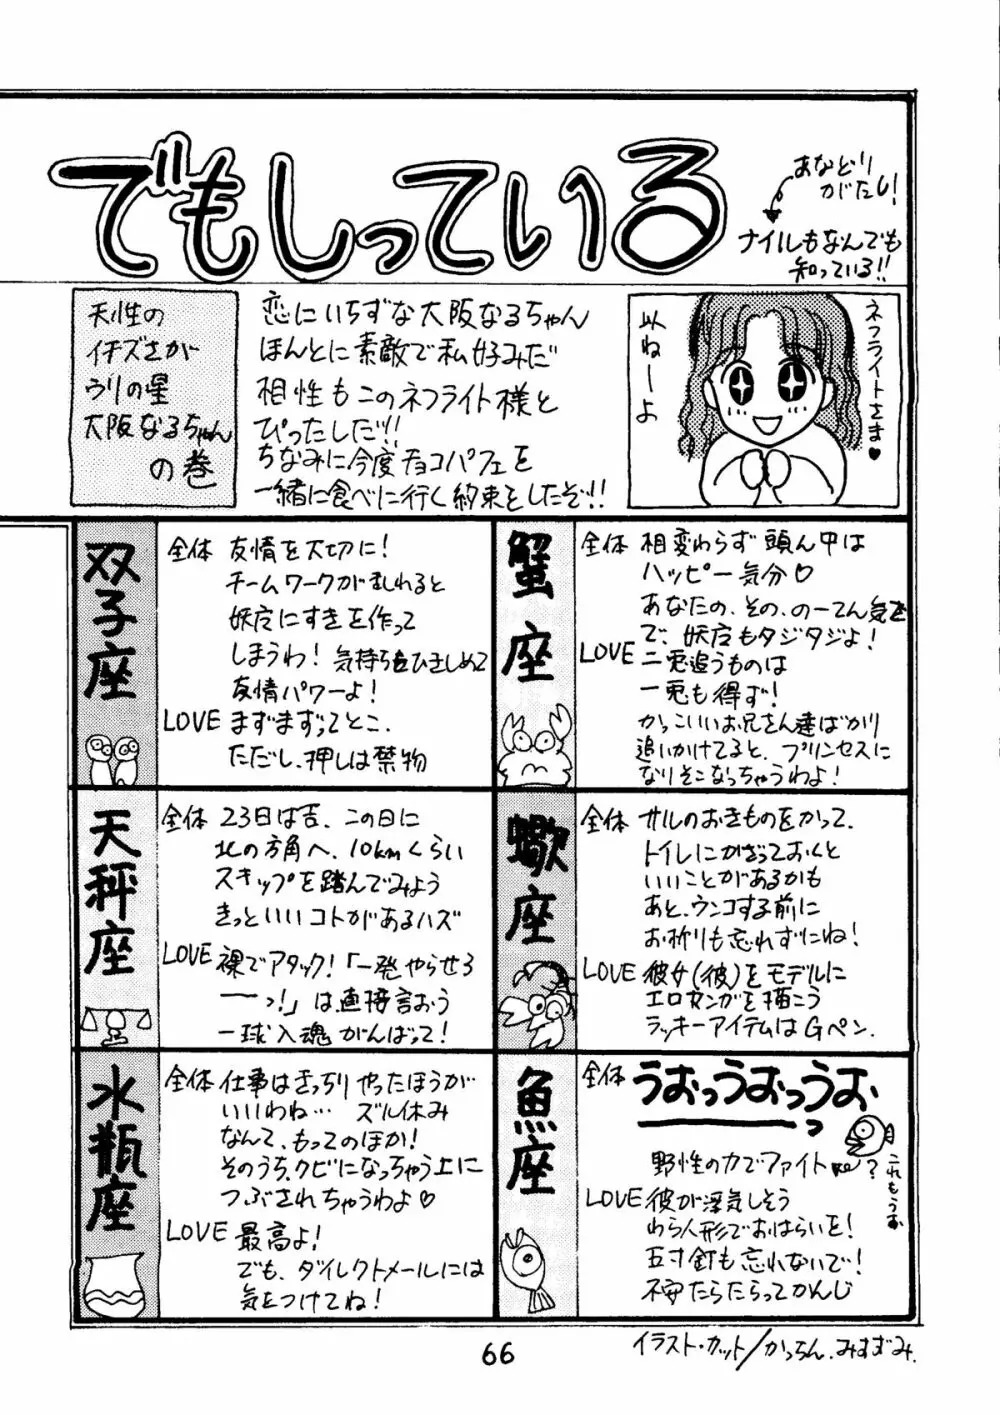 でもしっている
あなどり
がたし!
ナイルもなんでも
知っている!!
天性の
イチズさが
ウリの星
大阪なるちゃん
の巻
恋にいちずな大阪なるちゃん
ほんとに素敵で私好みだ
相性もこのネフライト様と
ぴったしだ!!
ちなみに今度チョコパフェを
一緒に食べに行く約束をしたぞ!!
ネフライトさま♥
以ねーよ
双子座
全体 友情を大切に!
チームワークが乱れると
妖魔にすきを作って
しまうわ! 気持ちをひきしめて
友情パワーよ!
LOVE まずまずってとこ.
ただし、押しは禁物
蟹座
全体 相変わらず頭ん中は
ハッピー気分♡
あなたの、その、のーてん気さ
で、妖魔もタジタジよ!
LOVE 二兎追うものは
一兎も得ず!
かっこいいお兄さん達ばかり
追いかけてると、プリンセスに
なりそこなっちゃうわよ!
天秤座
全体 23日は吉、この日に
北の方角へ、10kmくらい
スキップを踏んでみよう
きっといいコトがあるハズ
LOVE 裸でアタック!「一発やらせろ
ーっ!」は直接言おう
一球入魂 がんばって!
蠍座
全体 サルのおきものをかって、
トイレにかざっておくと
いいことがあるかも
あと、ウンコする前に
お祈りも忘れずにね!
LOVE 彼女(彼)をモデルに
エロマンガを描こう
ラッキーアイテムはGペン.
水瓶座
全体 仕事はきっちりやったほうが
いいわね… ズル休み
なんて、もってのほか!
そのうち、クビになっちゃう上に
つぶされちゃうわよ♡
LOVE 最高よ!
でも、ダイレクトメールには
気をつけてね!
魚座
全体 うおっうおっうおっ
野性の力でファイト
?
これもうお
LOVE 彼が浮気しそう
わら人形でおはらいを!
五寸釘も忘れないで!
不安たらたらってかんじ
66
イラスト・カット/かっちん.みすずみ.